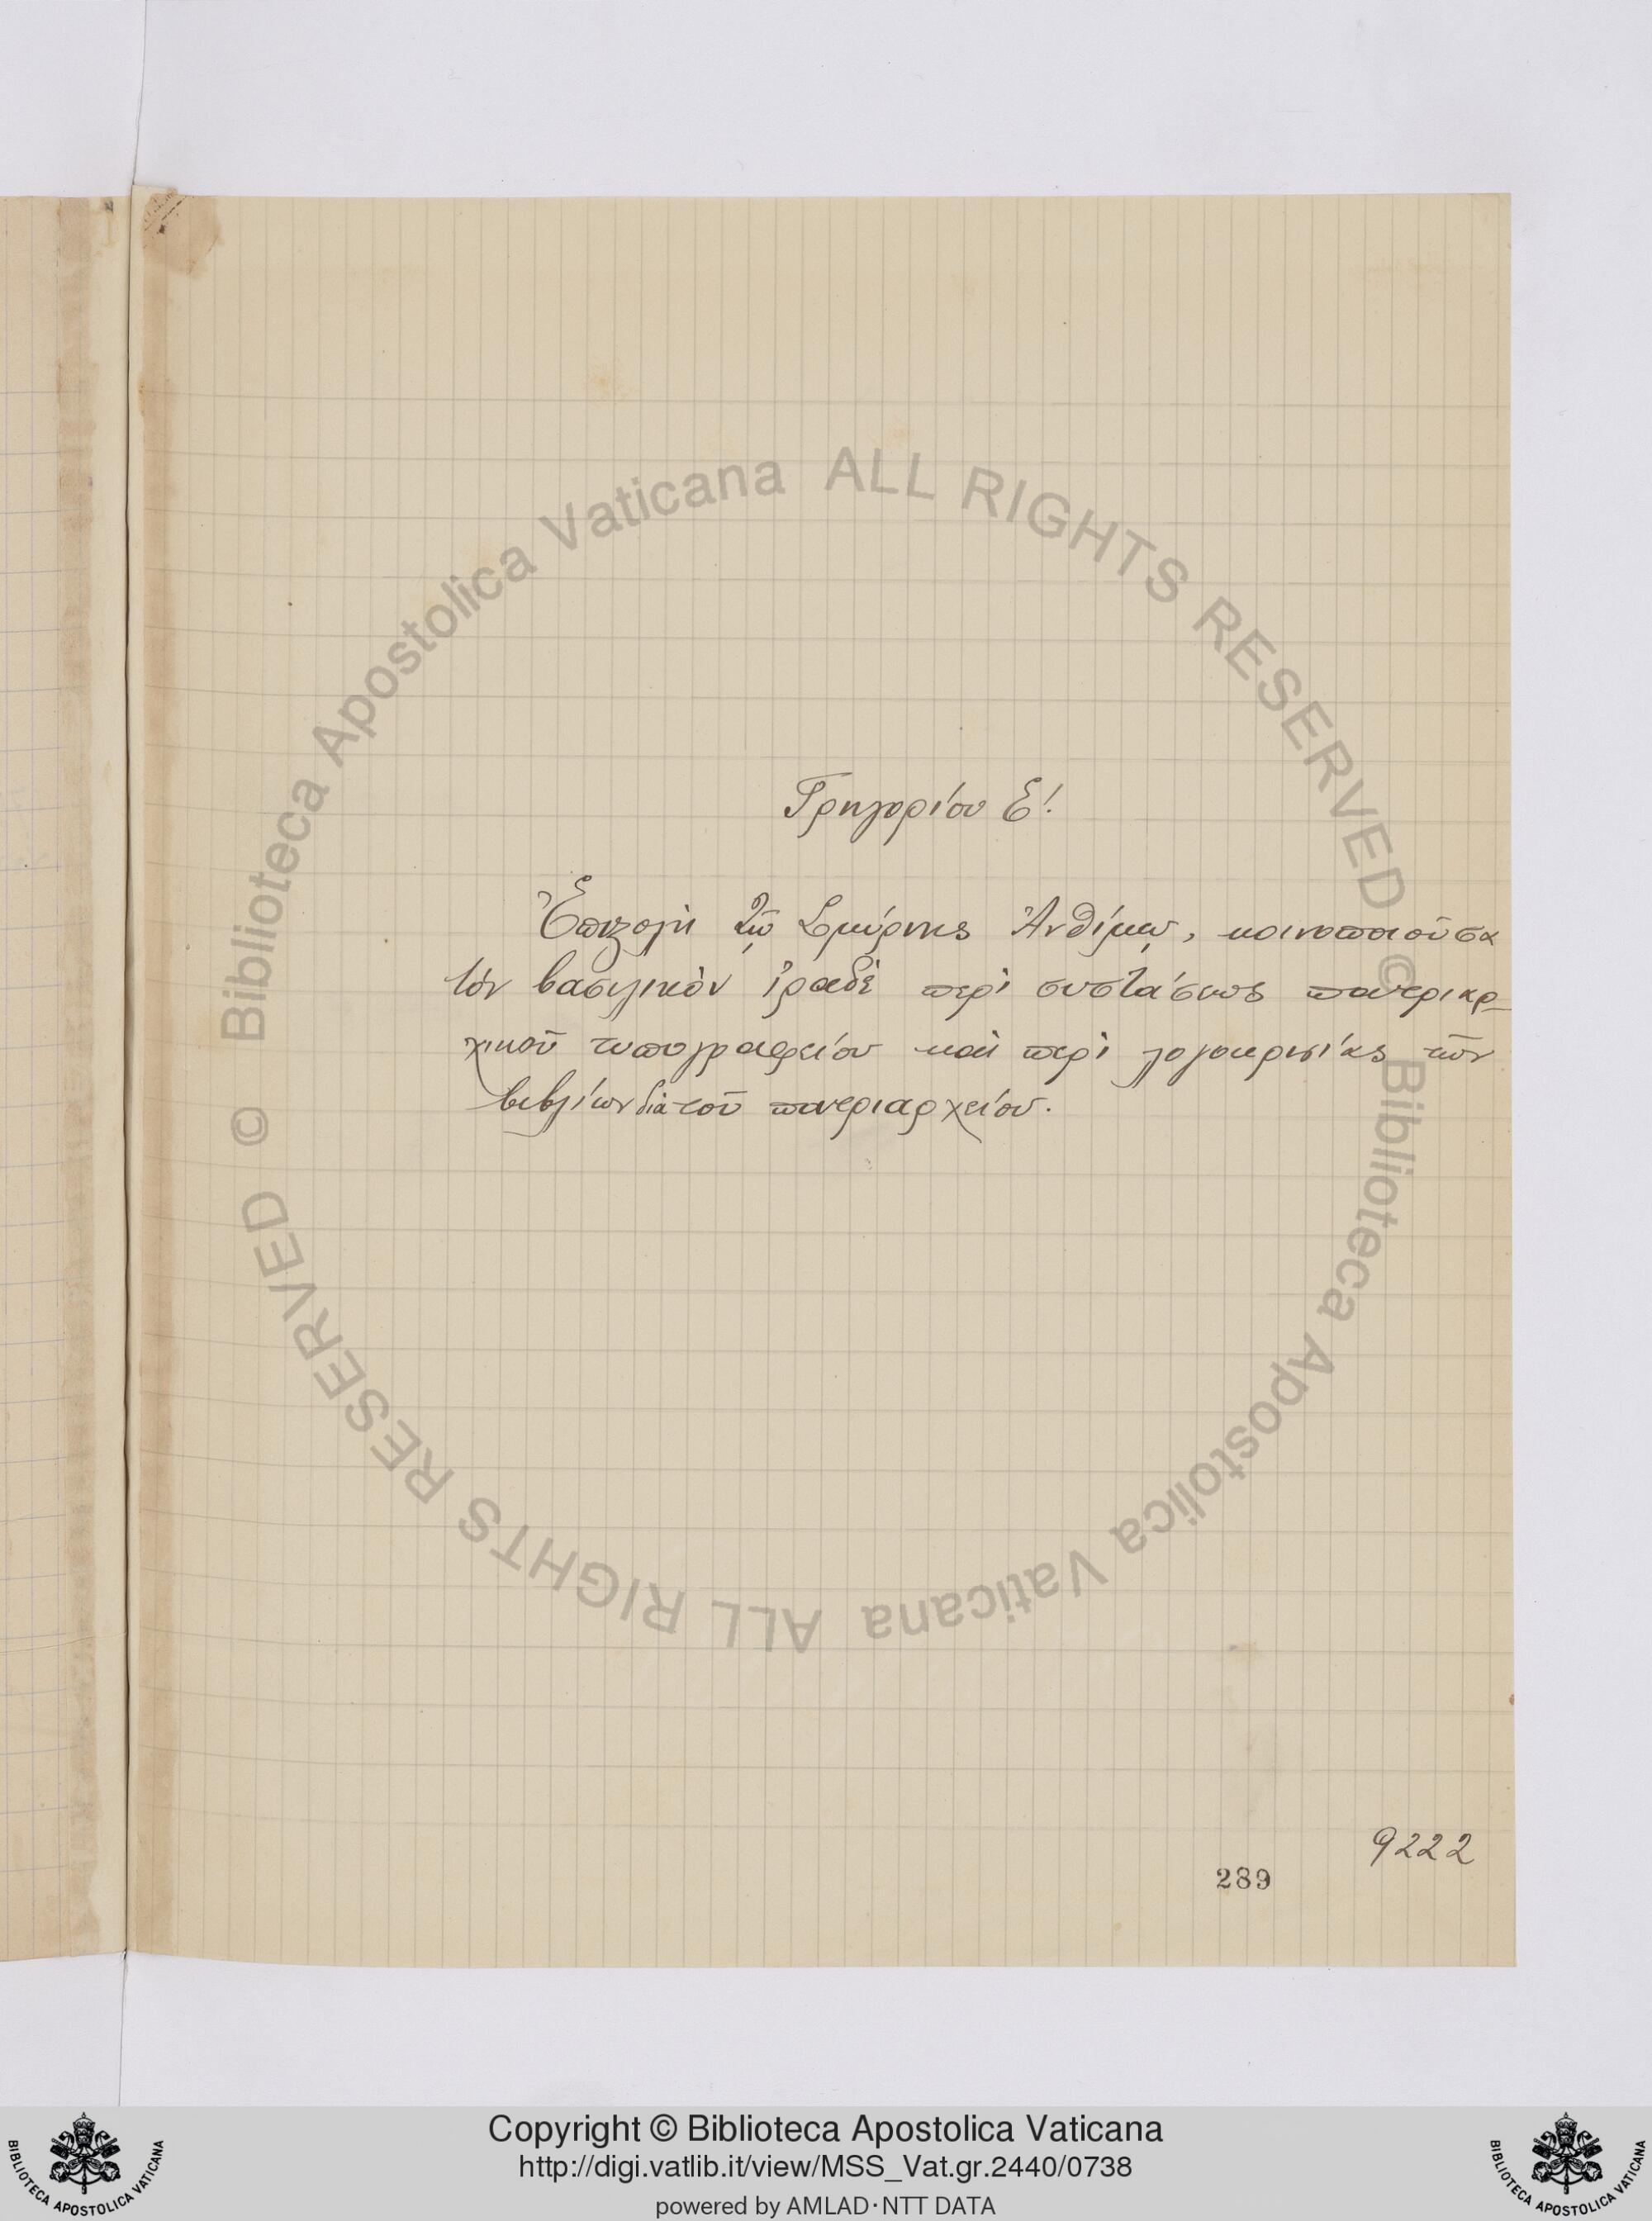 Γρηγορίου Ε΄.
Ἐπιστολὴ τῷ Σμύρνης Ἀνθίμῳ, κοινοποιοῦσα
τὸν βασιλικὸν ἰραδὲ περὶ συστάσεως πατριαρ-
χικοῦ τυπογραφείου καὶ περὶ λογοκρισίας τῶν
βιβλίων διὰ τοῦ πατριαρχείου.
9222
289
© Biblioteca Apostolica Vaticana ALL RIGHTS RESERVED
© Biblioteca Apostolica Vaticana ALL RIGHTS RESERVED
Copyright © Biblioteca Apostolica Vaticana
http://digi.vatlib.it/view/MSS_Vat.gr.2440/0738
powered by AMLAD·NTT DATA
BIBLIOTECA APOSTOLICA VATICANA
BIBLIOTECA APOSTOLICA VATICANA